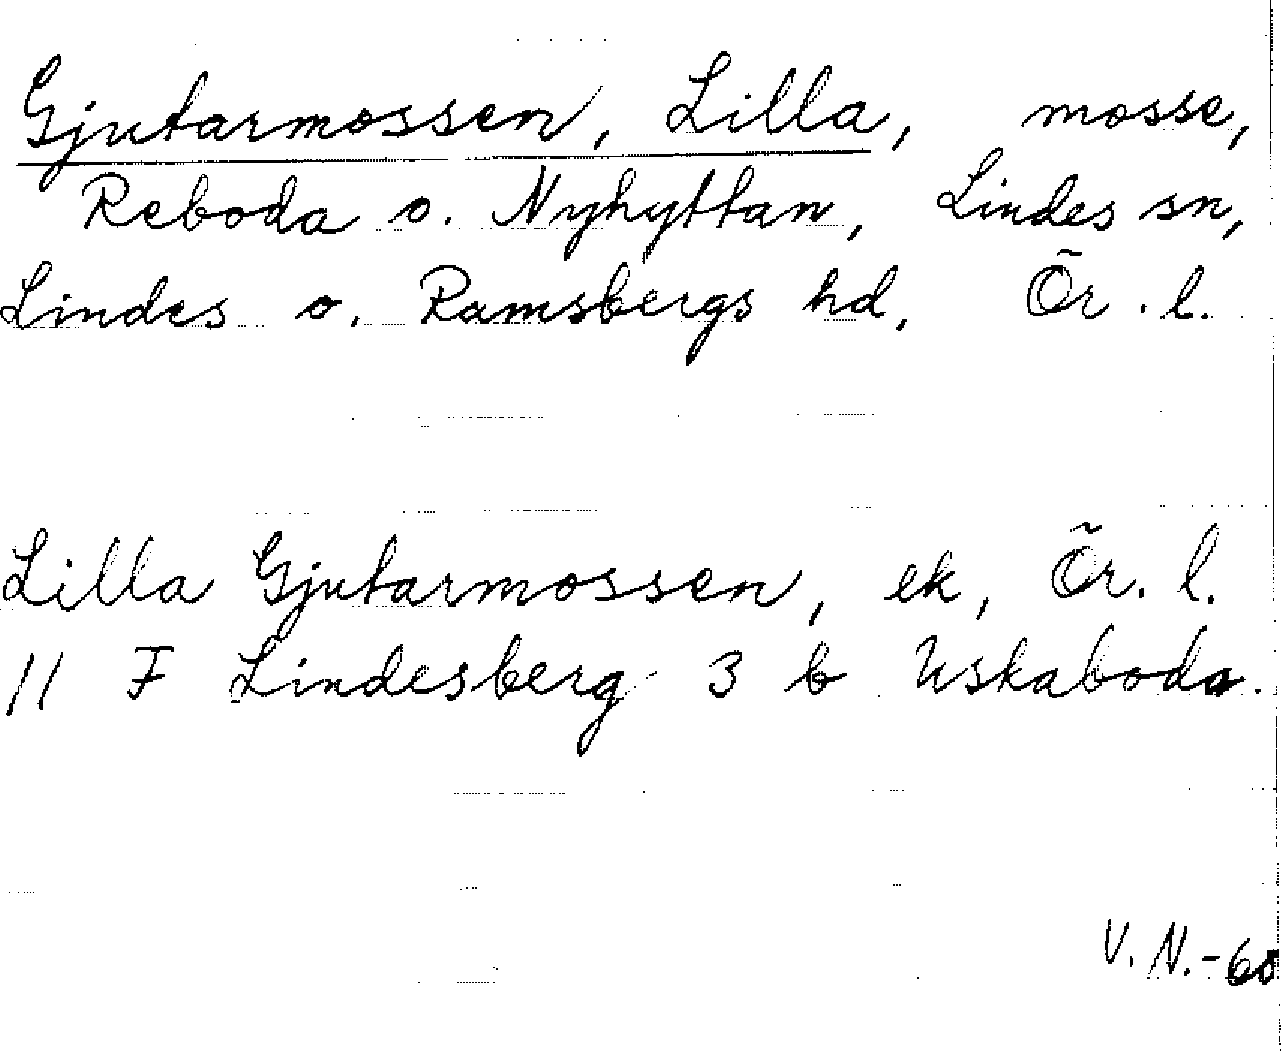 Gjutarmossen, Lilla, mosse,
Reboda o. Nyhyttan, Lindes sn,
Lindes o. Ramsbergs hd, Ör. l.
Lilla Gjutarmossen, ek, Ör. l.
11 F Lindesberg 3 b Uskaboda.
V. N. -60